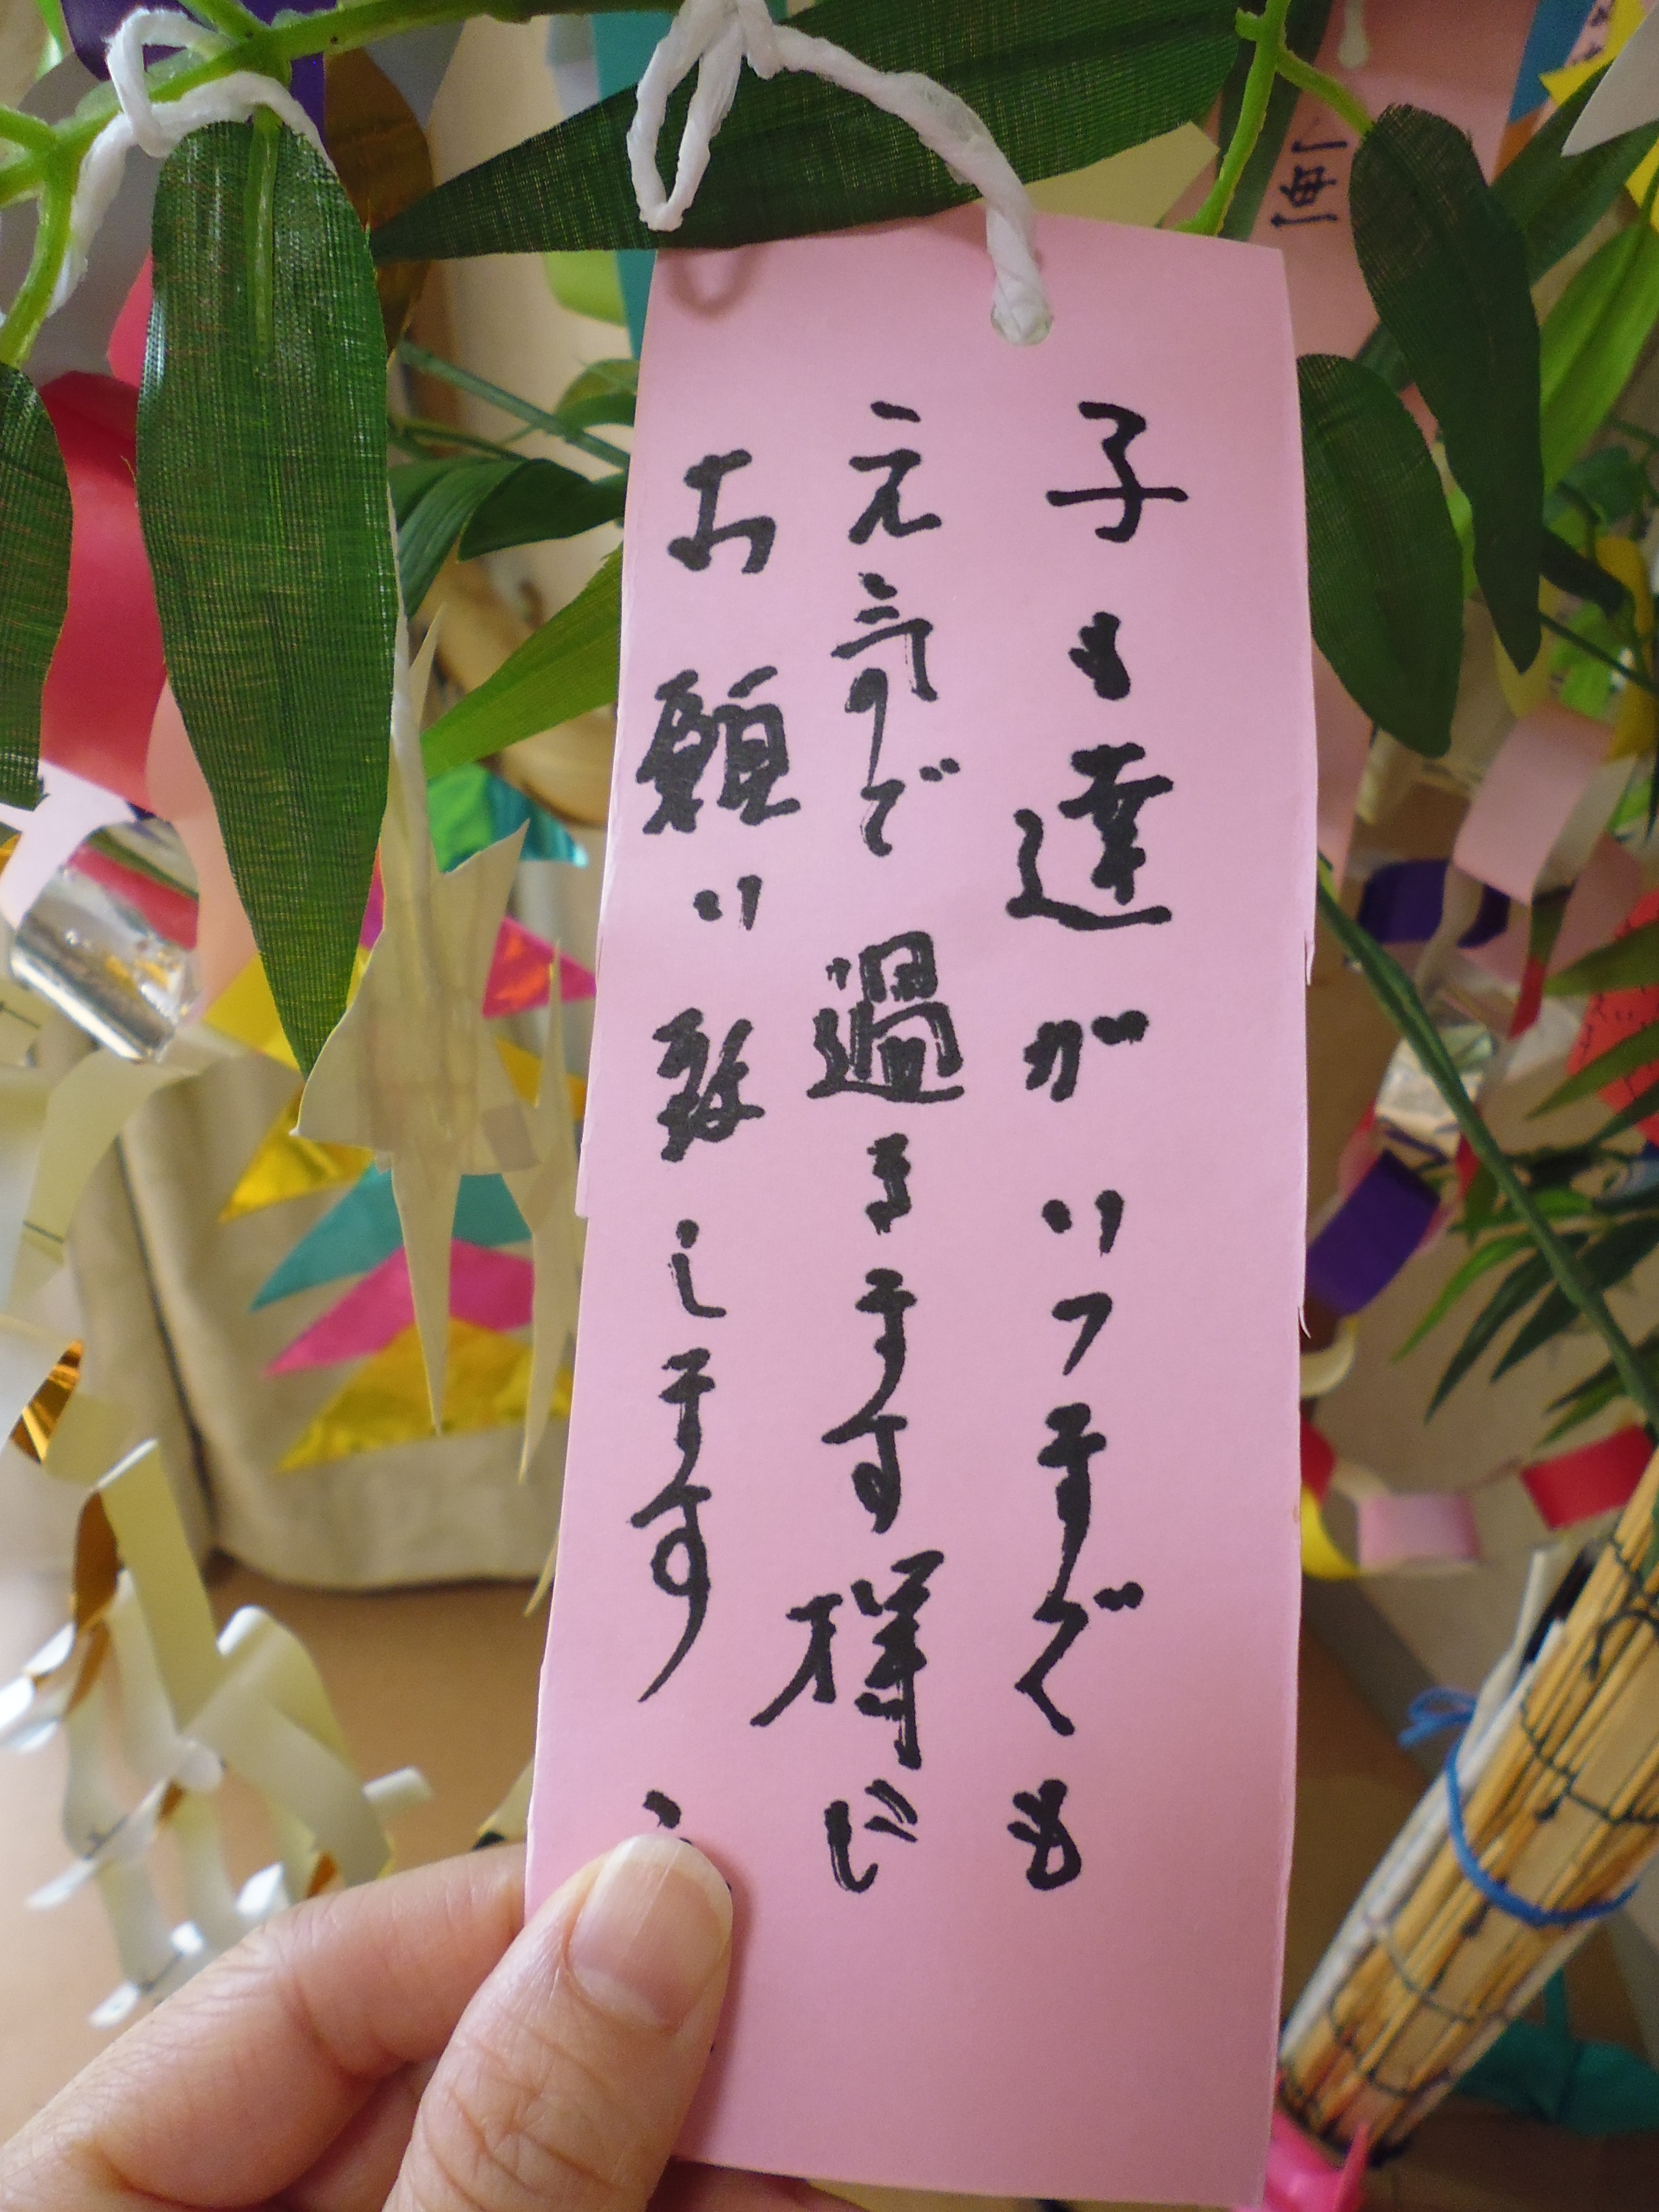 子も達がいつまでも
元気で過きます様に
お願い致します